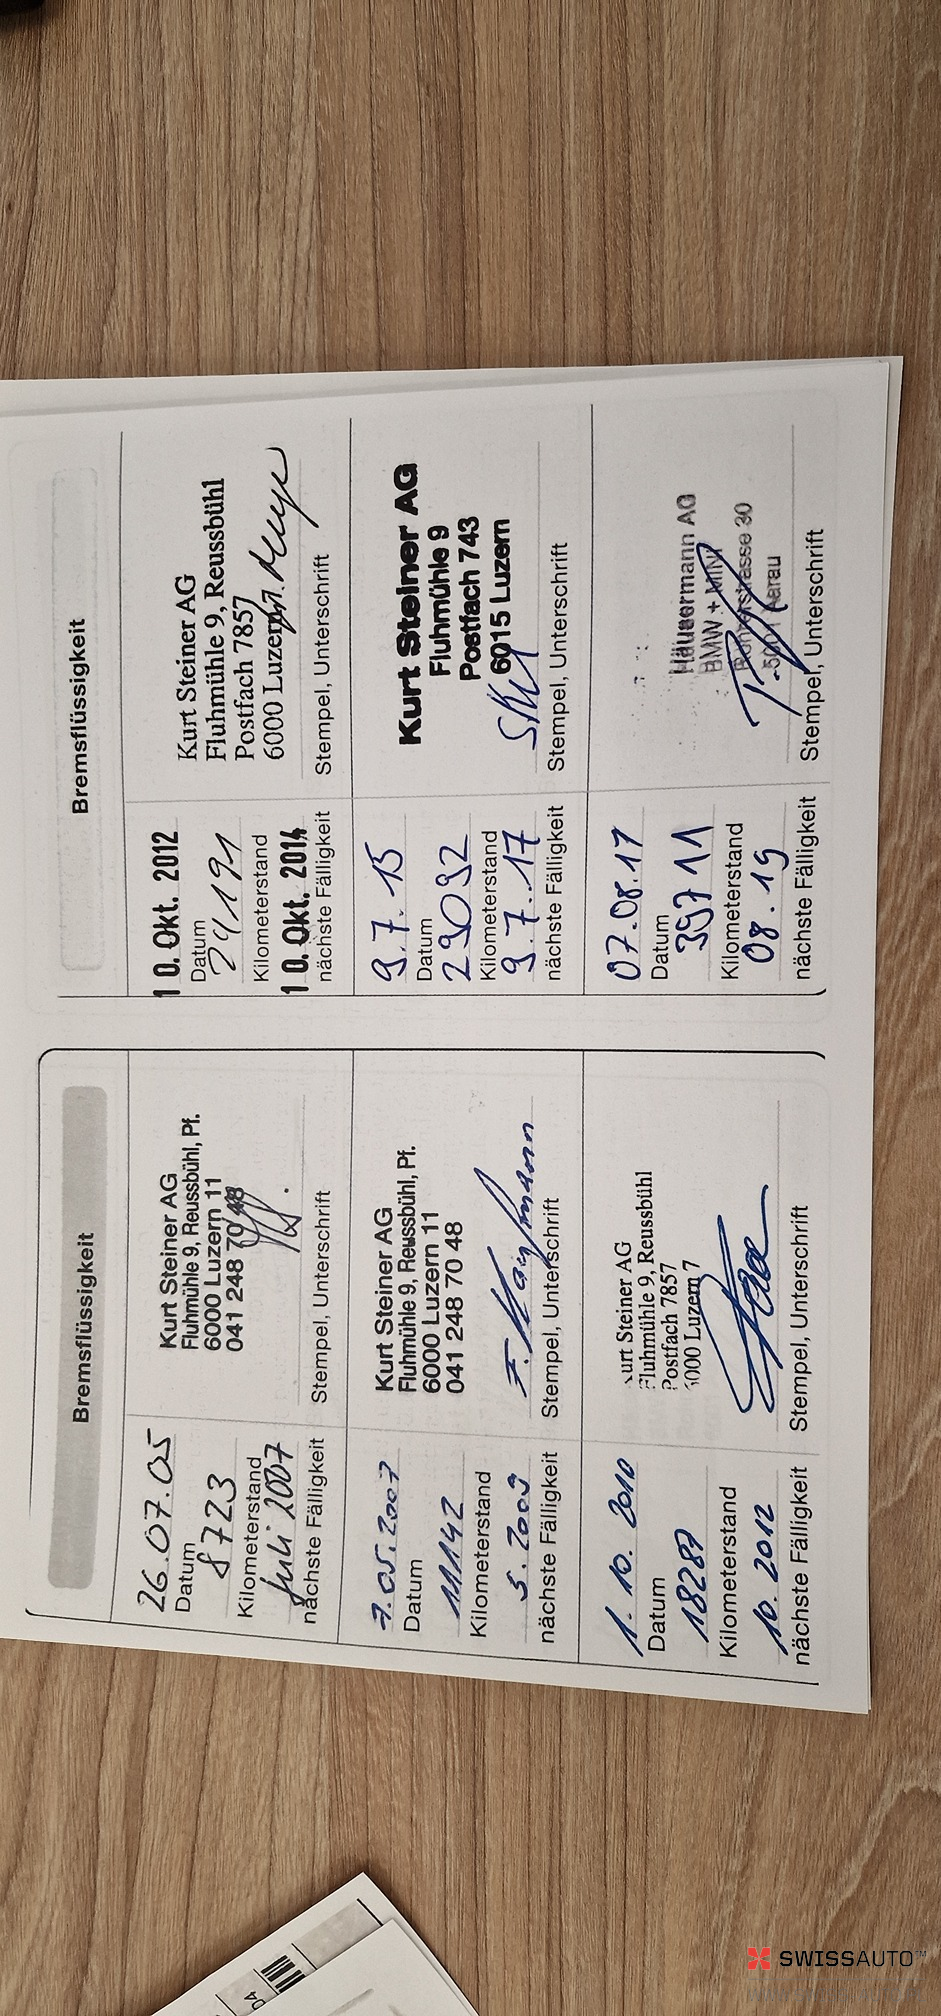 Bremsflüssigkeit
26.07.05
Datum
8723
Kilometerstand
Juli 2007
nächste Fälligkeit
Kurt Steiner AG
Fluhmühle 9, Reussbühl, Pf.
6000 Luzern 11
041 248 70 48
Stempel, Unterschrift
7.05.2007
Datum
11142
Kilometerstand
5.2009
nächste Fälligkeit
Kurt Steiner AG
Fluhmühle 9, Reussbühl, Pf.
6000 Luzern 11
041 248 70 48
F. Kaufmann
Stempel, Unterschrift
1.10.2010
Datum
18287
Kilometerstand
10.2012
nächste Fälligkeit
urt Steiner AG
Fluhmühle 9, Reussbühl
Postfach 7857
6000 Luzern 7
Stempel, Unterschrift
Bremsflüssigkeit
10. Okt. 2012
Datum
24191
Kilometerstand
10. Okt. 2014
nächste Fälligkeit
Kurt Steiner AG
Fluhmühle 9, Reussbühl
Postfach 7857
6000 Luzern
Stempel, Unterschrift
9.7.15
Datum
29092
Kilometerstand
9.7.17
nächste Fälligkeit
Kurt Steiner AG
Fluhmühle 9
Postfach 743
6015 Luzern
Stempel, Unterschrift
07.08.17
Datum
39711
Kilometerstand
08.19
nächste Fälligkeit
Häusermann AG
BMW + MINI
Rohrerstrasse 30
-5001 Aarau
Stempel, Unterschrift
SWISSAUTO™